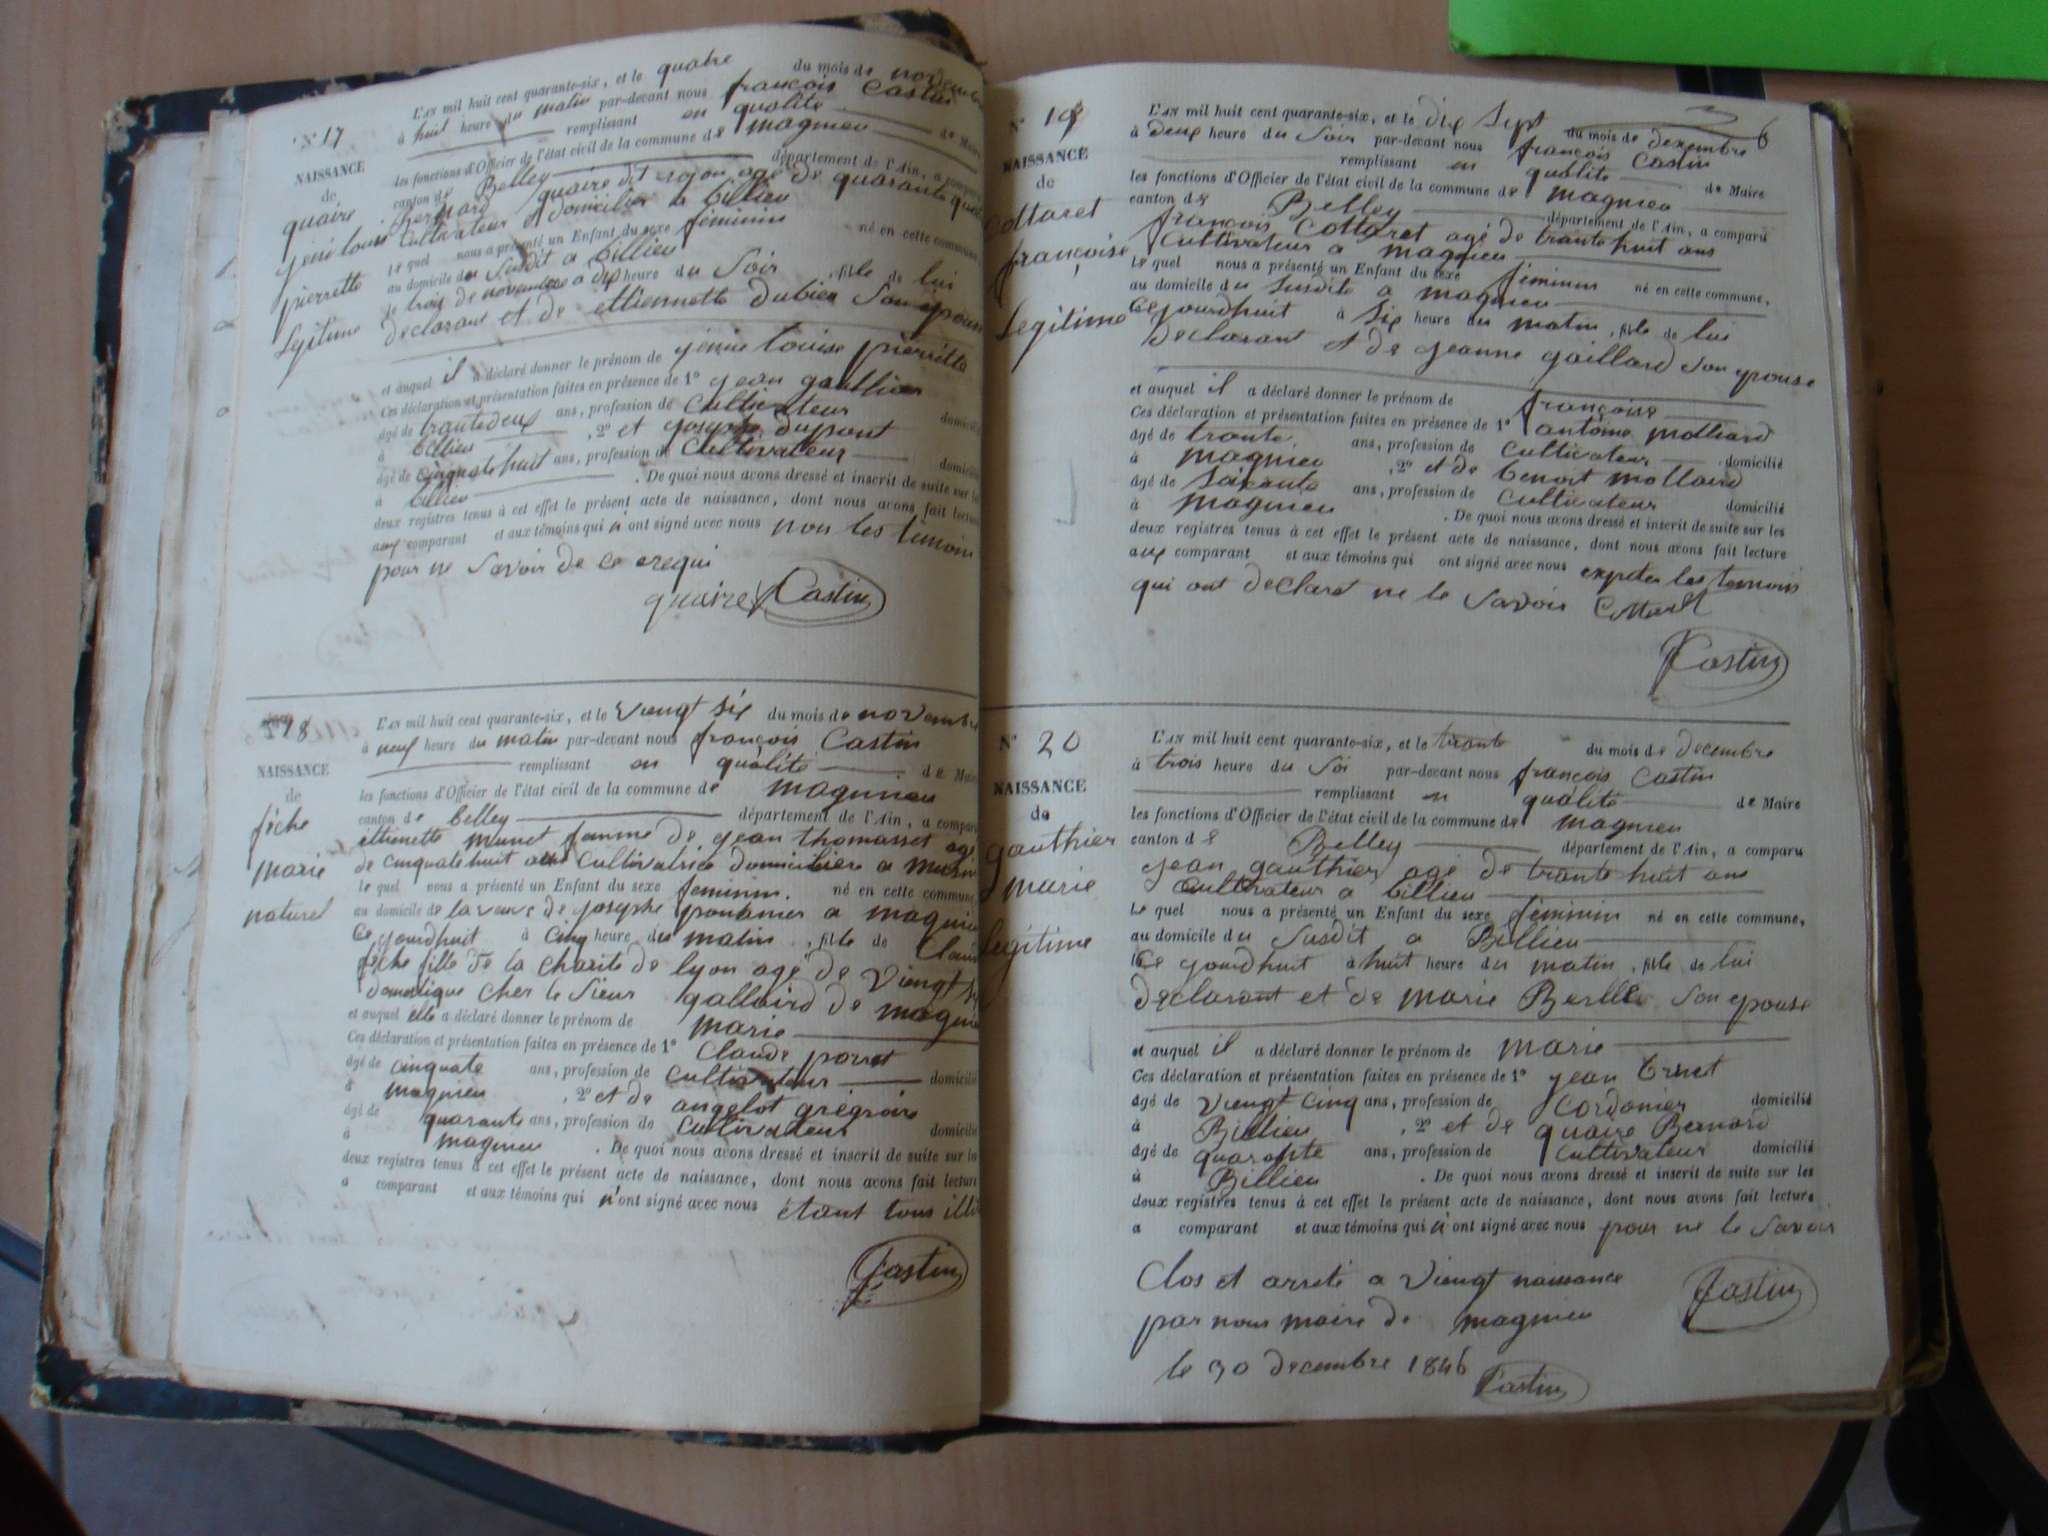 N° 17
NAISSANCE
de
quaire
jeni louise
pierrette
Legitime
L'AN mil huit cent quarante-six, et le quatre du mois de novembre
à huit heure du matin par-devant nous françois Castin
remplissant en qualité de Maire
les fonctions d'Officier de l'état civil de la commune de magnieu
canton de Belley département de l'Ain, a comparu
bernard quaire dit rojon agé de quarante
cultivateur domicilier a billieu
Le quel nous a présenté un Enfant du sexe féminin né en cette commune
au domicile du susdit a billieu
le trois de novembre a dix heure du Soir, fille de lui
declarant et de ettiennette dubien Son epouse
et auquel il a déclaré donner le prénom de jenine louise pierrette
Ces déclaration et présentation faites en présence de 1° jean gauthier
âgé de trantedeux ans, profession de cultivateur domicilié
à billieu, 2° et joseph dupont
âgé de cinquate huit ans, profession de Cultivateur domicilié
à billieu. De quoi nous avons dressé et inscrit de suite sur les
deux registres tenus à cet effet le présent acte de naissance, dont nous avons fait lecture
aux comparant et aux témoins qui n ont signé avec nous non les temoin
pour ne Savoir de ce erequi
quaire Castin
18
NAISSANCE
de
fiche
marie
naturel
L'AN mil huit cent quarante-six, et le viengt six du mois de novembre
à neuf heure du matin par-devant nous françois Castin
remplissant en qualité de Maire
les fonctions d'Officier de l'état civil de la commune de magnieu
canton de belley département de l'Ain, a comparu
ettienette munet femme de jean thomasset agé
de cinquatehuit ans cultivatrice domiciliere a
le quel nous a présenté un Enfant du sexe feminin. né en cette commune
au domicile de la veuve de josephe a magnieu
Ce jourdhuit à cinq heure du matin, fille de
fiche fille de la charité de lyon agé de viengt
domestique cher le Sieur gallaird de magnieu
et auquel elle a déclaré donner le prénom de marie
Ces déclaration et présentation faites en présence de 1° Claude porret
âgé de cinquate ans, profession de cultivateur domicilié
à magnieu, 2° et de angelot grégroire
âgé de quarante ans, profession de cultivateur domicilié
à magnieu. De quoi nous avons dressé et inscrit de suite sur les
deux registres tenus à cet effet le présent acte de naissance, dont nous avons fait lecture
a comparant et aux témoins qui n'ont signé avec nous étant tous
Castin
6
N° 19
NAISSANCE
de
Cottaret
françoise
Legitime
L'AN mil huit cent quarante-six, et le dix Sept du mois de dexembre
à deux heure du Soir par-devant nous françois Castin
remplissant en qualité de Maire
les fonctions d'Officier de l'état civil de la commune de magnieu
canton de Belley département de l'Ain, a comparu
françois Cottaret agé de trante huit ans
Cultivateur a magnieu
Le quel nous a présenté un Enfant du sexe féminin né en cette commune,
au domicile du susdite a magnieu
Cejourdhuit à six heure du matin, fille de lui
declarant et de jeanne gaillard son epouse
et auquel il a déclaré donner le prénom de françoise
Ces déclaration et présentation faites en présence de 1° antoine molliard
âgé de trante ans, profession de cultivateur domicilié
à magnieu, 2° et de benoit mollaird
âgé de Saixante ans, profession de cultivateur domicilié
à magnieu. De quoi nous avons dressé et inscrit de suite sur les
deux registres tenus à cet effet le présent acte de naissance, dont nous avons fait lecture
aux comparant et aux témoins qui ont signé avec nous expetes les temoins
qui ont declaré ne le Savoir Cottaret
Castin
N° 20
NAISSANCE
de
gauthier
marie
Legitime
L'AN mil huit cent quarante-six, et le trante du mois de decembre
à trois heure du Soi par-devant nous françois Castin
remplissant en qualité de Maire
les fonctions d'Officier de l'état civil de la commune de magnieu
canton de Belley département de l'Ain, a comparu
jean gauthier agé de trante huit ans
Cultivateur a billieu
Le quel nous a présenté un Enfant du sexe féminin né en cette commune,
au domicile du susdit a Billieu
Ce jourdhuit à huit heure du matin, fille de lui
declarant et de marie Berlle Son epouse
et auquel il a déclaré donner le prénom de marie
Ces déclaration et présentation faites en présence de 1° jean brnet
âgé de viengt cinq ans, profession de cordonier domicilié
à Billieu, 2° et de quaire Bernard
âgé de quarante ans, profession de cultivateur domicilié
à Billieu. De quoi nous avons dressé et inscrit de suite sur les
deux registres tenus à cet effet le présent acte de naissance, dont nous avons fait lecture
a comparant et aux témoins qui n ont signé avec nous pour ne le Savoir
Clos et arreté a viengt naissance
par nous maire de magnieu Castin
le 30 decembre 1846 Castin